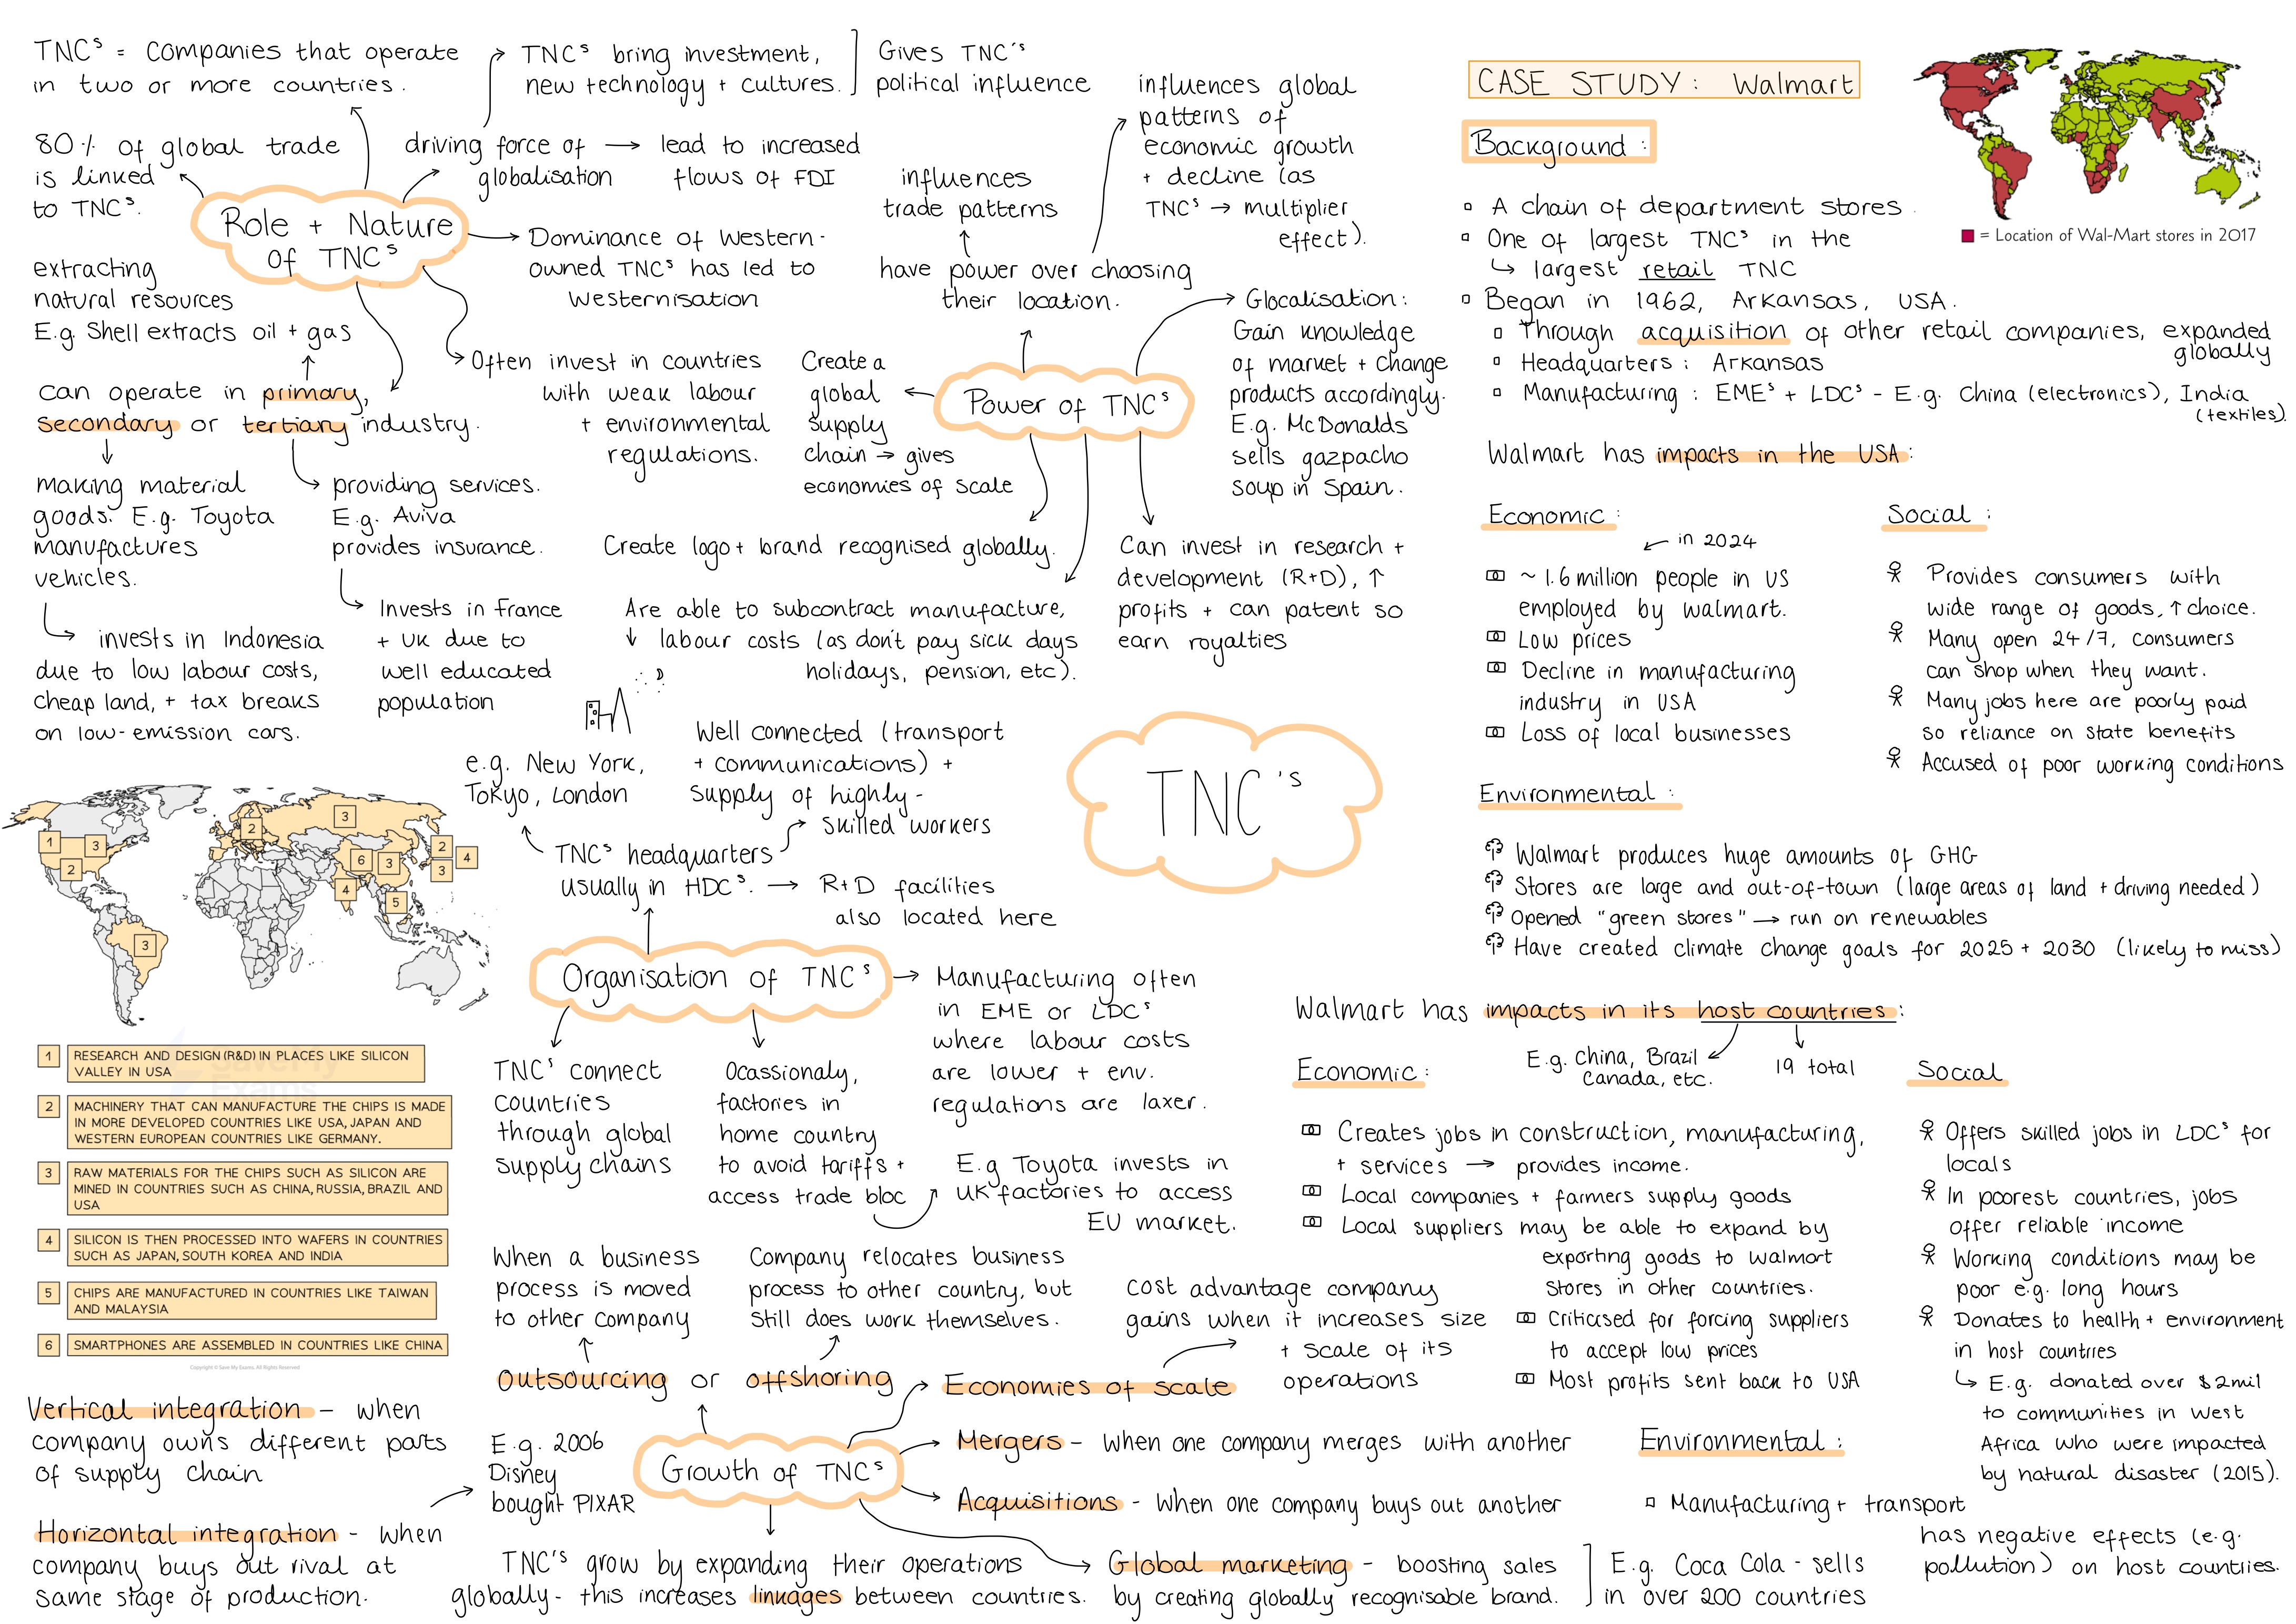 TNCs = Companies that operate
in two or more countries.
80% of global trade
is linked
to TNCs.
Role + Nature
of TNCs
driving force of → lead to increased
globalisation flows of FDI
TNCs bring investment,
new technology + cultures.
Gives TNC's
political influence
Dominance of Western-
owned TNCs has led to
Westernisation
Often invest in countries
with weak labour
+ environmental
regulations.
extracting
natural resources
E.g. Shell extracts oil + gas
can operate in primary,
secondary or tertiary industry.
making material
goods. E.g. Toyota
manufactures
vehicles.
invests in Indonesia
due to low labour costs,
cheap land, + tax breaks
on low-emission cars.
providing services.
E.g. Aviva
provides insurance.
Invests in France
+ UK due to
well educated
population
Power of TNCs
influences
trade patterns
have power over choosing
their location.
influences global
patterns of
economic growth
+ decline (as
TNCs → multiplier
effect).
Glocalisation:
Gain knowledge
of market + change
products accordingly.
E.g. McDonalds
sells gazpacho
soup in Spain.
Create a
global
supply
chain → gives
economies of scale
Create logo + brand recognised globally.
Are able to subcontract manufacture,
↓ labour costs (as don't pay sick days
holidays, pension, etc).
Can invest in research +
development (R+D), ↑
profits + can patent so
earn royalties
TNC's
e.g. New York,
Tokyo, London
Well connected (transport
+ communications) +
supply of highly-
skilled workers
TNCs headquarters
usually in HDCs. → R+D facilities
also located here
Organisation of TNCs
Manufacturing often
in EME or LDCs
where labour costs
are lower + env.
regulations are laxer.
TNCs connect
countries
through global
supply chains
Ocassionaly,
factories in
home country
to avoid tariffs +
access trade bloc
E.g Toyota invests in
UK factories to access
EU market.
1
3
2
2
3
3
6
3
4
5
2
3
4
1 RESEARCH AND DESIGN (R&D) IN PLACES LIKE SILICON
VALLEY IN USA
2 MACHINERY THAT CAN MANUFACTURE THE CHIPS IS MADE
IN MORE DEVELOPED COUNTRIES LIKE USA, JAPAN AND
WESTERN EUROPEAN COUNTRIES LIKE GERMANY.
3 RAW MATERIALS FOR THE CHIPS SUCH AS SILICON ARE
MINED IN COUNTRIES SUCH AS CHINA, RUSSIA, BRAZIL AND
USA
4 SILICON IS THEN PROCESSED INTO WAFERS IN COUNTRIES
SUCH AS JAPAN, SOUTH KOREA AND INDIA
5 CHIPS ARE MANUFACTURED IN COUNTRIES LIKE TAIWAN
AND MALAYSIA
6 SMARTPHONES ARE ASSEMBLED IN COUNTRIES LIKE CHINA
Copyright © Save My Exams. All Rights Reserved
SaveMy
Exams
When a business
process is moved
to other company
Company relocates business
process to other country, but
still does work themselves.
Outsourcing or offshoring
cost advantage company
gains when it increases size
+ scale of its
operations
Economies of scale
Growth of TNCs
Mergers - when one company merges with another
Acquisitions - When one company buys out another
Global marketing - boosting sales
by creating globally recognisable brand.
E.g. Coca Cola - sells
in over 200 countries
TNC's grow by expanding their operations
globally - this increases linkages between countries.
Vertical integration - when
company owns different parts
of supply chain
Horizontal integration - when
company buys out rival at
same stage of production.
E.g. 2006
Disney
bought PIXAR
CASE STUDY: Walmart
= Location of Wal-Mart stores in 2017
Background:
A chain of department stores.
One of largest TNCs in the
↳ largest retail TNC
Began in 1962, Arkansas, USA.
Through acquisition of other retail companies, expanded
globally
Headquarters: Arkansas
Manufacturing: EMEs + LDCs - E.g. China (electronics), India
(textiles).
Walmart has impacts in the USA:
Economic:
in 2024
~ 1.6 million people in US
employed by walmart.
Low prices
Decline in manufacturing
industry in USA
Loss of local businesses
Social:
Provides consumers with
wide range of goods, ↑ choice.
Many open 24/7, consumers
can shop when they want.
Many jobs here are poorly paid
so reliance on state benefits
Accused of poor working conditions
Environmental:
Walmart produces huge amounts of GHG
Stores are large and out-of-town (large areas of land + driving needed)
Opened "green stores" → run on renewables
Have created climate change goals for 2025 + 2030 (likely to miss)
Walmart has impacts in its host countries:
E.g. China, Brazil
Canada, etc.
19 total
Economic:
Creates jobs in construction, manufacturing,
+ services → provides income.
Local companies + farmers supply goods
Local suppliers may be able to expand by
exporting goods to walmart
stores in other countries.
Criticised for forcing suppliers
to accept low prices
Most profits sent back to USA
Social
Offers skilled jobs in LDCs for
locals
In poorest countries, jobs
offer reliable income
Working conditions may be
poor e.g. long hours
Donates to health + environment
in host countries
↳ E.g. donated over $2mil
to communities in West
Africa who were impacted
by natural disaster (2015).
Environmental:
Manufacturing + transport
has negative effects (e.g.
pollution) on host countries.